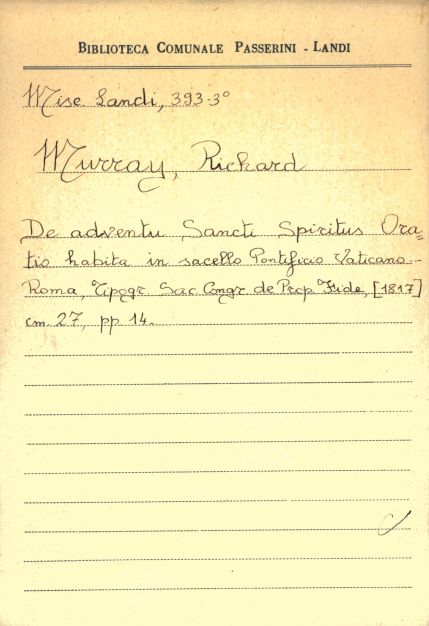 BIBLIOTECA COMUNALE PASSERINI - LANDI
Misc. Landi, 393-3°
Murray, Richard
De adventu Sancti Spiritus Ora=
tio habita in sacello Pontificio Vaticano.-
Roma, Tipogr. Sac. Congr. de Prop. Fide, [1817]
cm. 27, pp. 14.